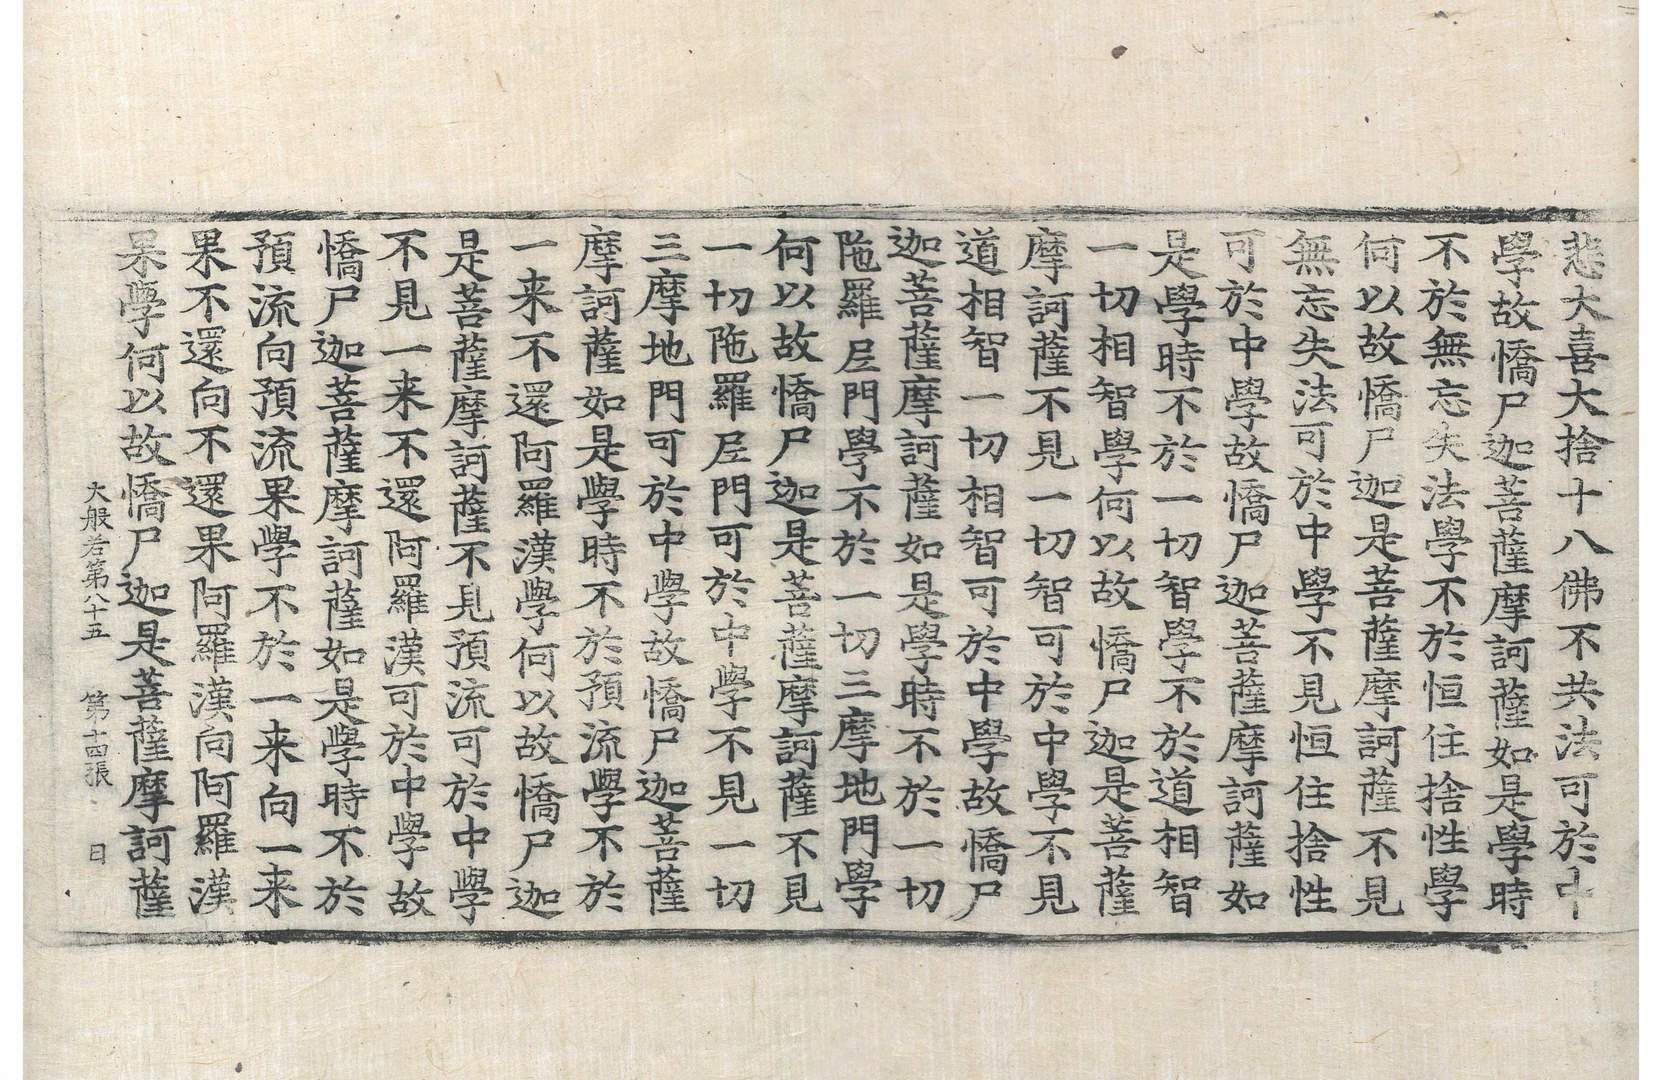 悲大喜大捨十八佛不共法可於中
學故憍尸迦菩薩摩訶薩如是學時
不於無忘失法學不於恒住捨性學
何以故憍尸迦是菩薩摩訶薩不見
無忘失法可於中學不見恒住捨性
可於中學故憍尸迦菩薩摩訶薩如
是學時不於一切智學不於道相智
一切相智學何以故憍尸迦是菩薩
摩訶薩不見一切智可於中學不見
道相智一切相智可於中學故憍尸
迦菩薩摩訶薩如是學時不於一切
陁羅尼門學不於一切三摩地門學
何以故憍尸迦是菩薩摩訶薩不見
一切陁羅尼門可於中學不見一切
三摩地門可於中學故憍尸迦菩薩
摩訶薩如是學時不於預流學不於
一来不還阿羅漢學何以故憍尸迦
是菩薩摩訶薩不見預流可於中學
不見一来不還阿羅漢可於中學故
憍尸迦菩薩摩訶薩如是學時不於
預流向預流果學不於一来向一来
果不還向不還果阿羅漢向阿羅漢
果學何以故憍尸迦是菩薩摩訶薩
大般若第八十五 第十四張 日